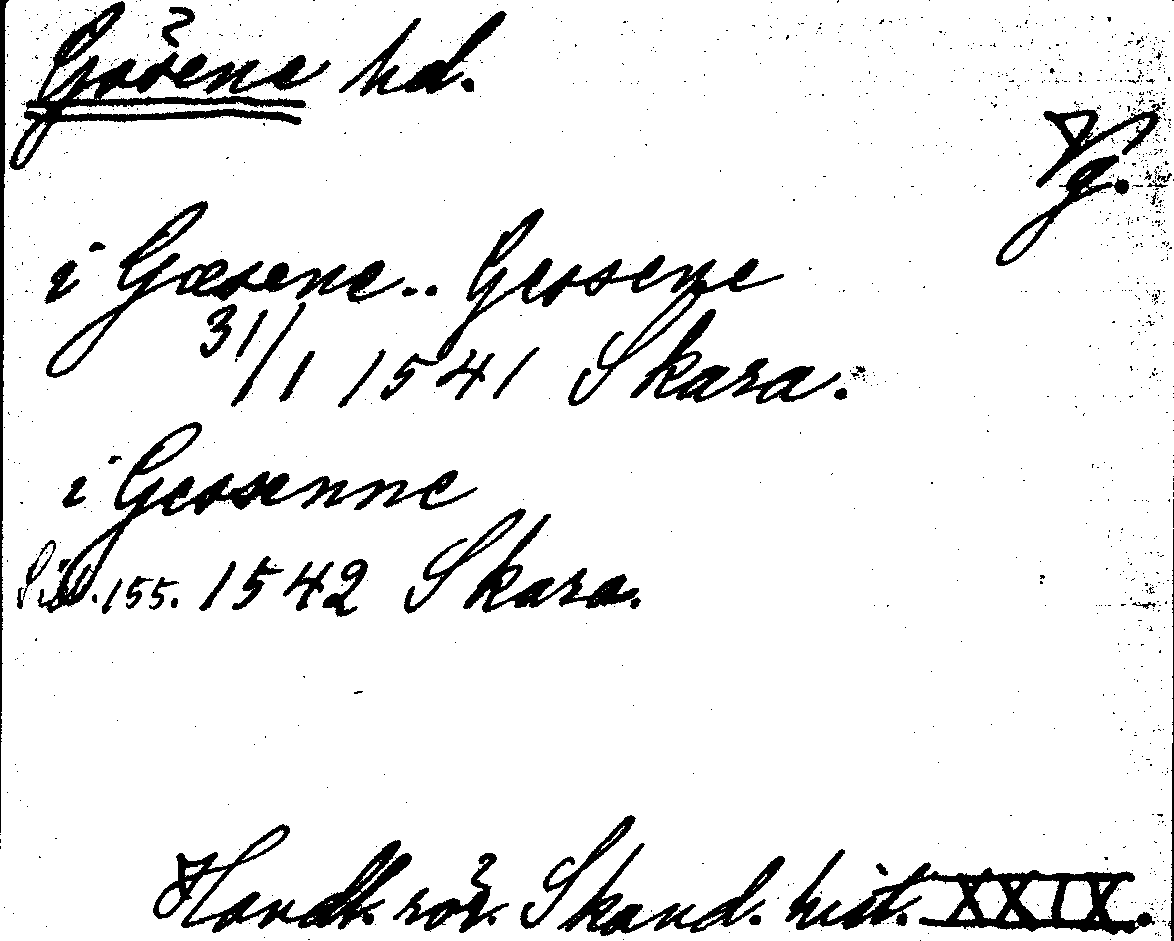 Gäsene hd.
Vg.
i Gæsene.. Gessene
31/1 1541 Skara.
i Gessenne
Sid. 155. 1542 Skara.
Handl. rör. Skand. hist. XXIX.